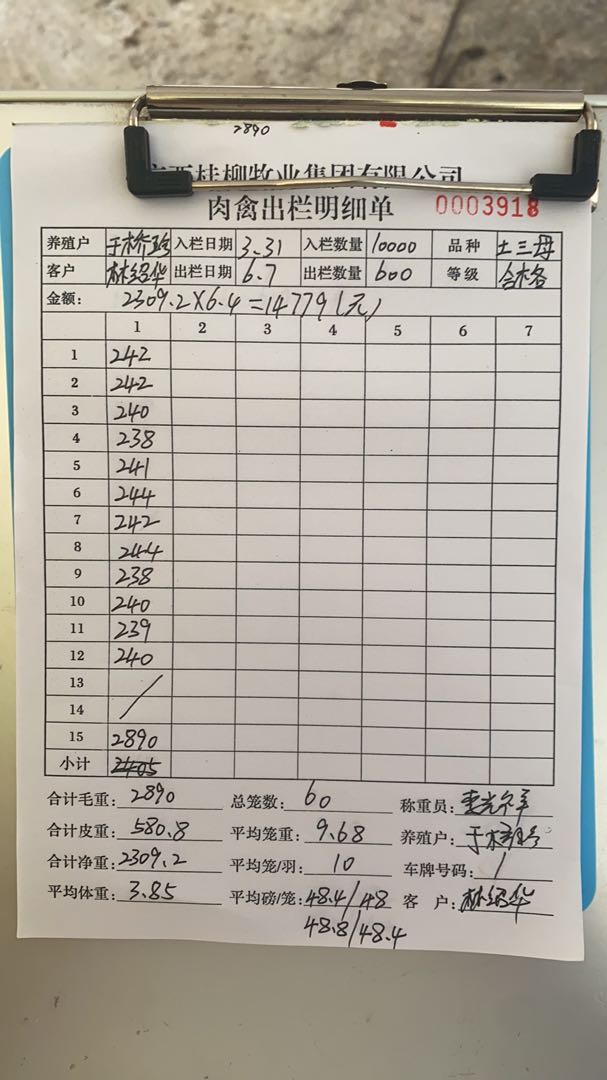 2890
广西桂柳牧业集团有限公司
肉禽出栏明细单 0003918
养殖户 于桥珍 入栏日期 3.31 入栏数量 10000 品种 土三母
客户 林绍华 出栏日期 6.7 出栏数量 600 等级 合格
金额： 2309.2×6.4=14779(元)
1 2 3 4 5 6 7
1 242
2 242
3 240
4 238
5 241
6 244
7 242
8 244
9 238
10 240
11 239
12 240
13 /
14
15 2890
小计 2405
合计毛重：2890 总笼数：60 称重员：
合计皮重：580.8 平均笼重：9.68 养殖户：于桥珍
合计净重：2309.2 平均笼/羽：10 车牌号码：/
平均体重：3.85 平均磅/笼：48.4/48 客 户：林绍华
48.8/48.4